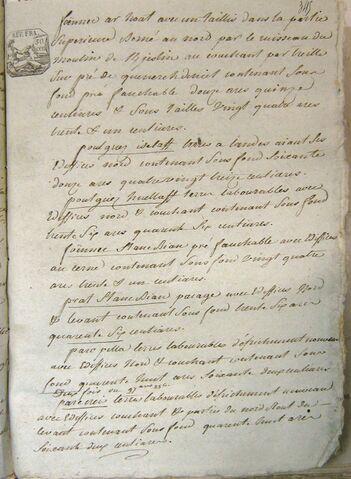 foënnec ar hoat avec un taillis dans la partie
Superieure Borné au nord par le ruisseau du
moulin de au couchant par treille
Sur pré de contenant Sous
fond pré fauchable douze ares quinze
centiares & Sous taillis vingt quatre ares
trente & un centiares.
poulguez isellaff terres a landes aiant ses
Edifices nord contenant Sous fond Soixante
douze ares quatre vingt treize centiares.
poulguez huellaff terres labourables avec
Edifices nord & couchant contenant Sous fond
trente Six ares quarante Six centiares.
foënnec Stanc Bian pré fauchable avec Edifices
au cerné contenant Sous fond vingt quatre
ares trente & un centiares.
prat Stanc Bian pacage avec Edifices Nord
& levant contenant Sous fond trente Six ares
quarante Six centiares.
parc pella terres labourables défrichement nouveau
avec Edifices Nord & couchant contenant Sous
fond quarante huit ares Soixante deux centiares
parc creis terres labourables défrichement nouveau
avec Edifices couchant & partie du nord Bout du
levant contenant Sous fond quarante huit ares
Soixante deux centiares.